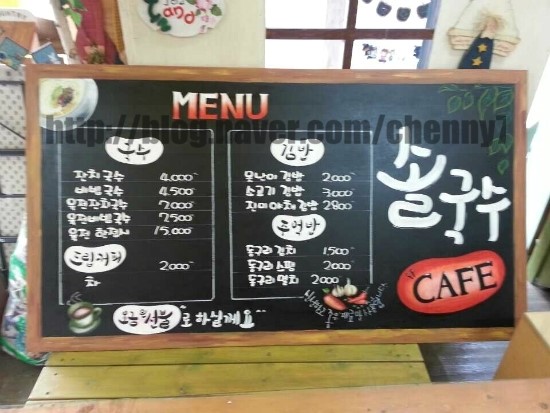 MENU
http://blog.naver.com/chenny7
국수
잔치국수 4,000
비빔국수 4,500
육전잔치국수 7,000
육전비빔국수 7,500
육전 한접시 15,000
드립커피
차 2,000
김밥
못난이 김밥 2,000
소고기 김밥 3,000
진미야채김밥 2,800
주먹밥
동구리 김치 1,500
동구리 스팸 2,000
동구리 멸치 2,000
솔국수
CAFE
요금은 선불로 하실게요